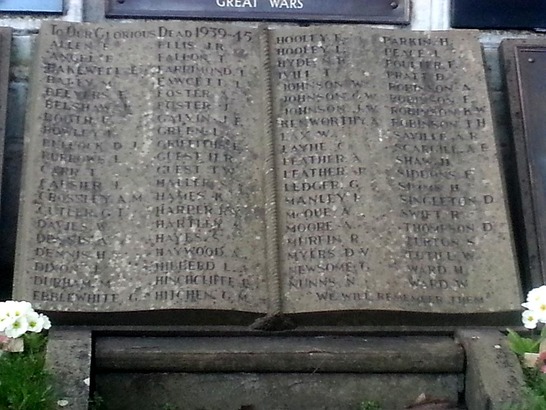 GREAT WARS
TO OUR GLORIOUS DEAD 1939-45
ALLEN E.
ANGEL
BAKEWELL E.
BATLEY
BEEVERS
BELSHAW
BOOTH E.
BOWLEY
BULLOCK D. J.
BURROWS
CARR T.
CROSSLEY A.M.
CUTLER G.T.
DAVIES W.
DENNIS A.
DENNIS H.
DIXON
DURHAM M.
EBBLEWHITE G.
ELLIS J.R.
FALLON T.
FARRIMOND T.
FAWCETT L.
FOSTER
FOSTER J.
GALVIN J.E.
GREEN L.
GRIFFITHS E.
GUEST H.R.
GUEST T.W.
HALLER
HAMES K.
HARPER
HARTLEY
HAYES
HAYWOOD A.
HIBBERD L.
HINCHCLIFFE
HITCHEN G.M.
HOOLEY F.
HOOLEY L.
HYDE
JOHNSON W.
JOHNSON G.W.
JOHNSON J.W.
KENWORTHY A.
LAYNE C.
LEATHER A.
LEATHER
LEDGER G.
MANLEY F.
MCQUE A.
MOORE A.
MURFIN R.
MYERS D.V.
NEWSOME G.
NUNNS N.
PARKIN H.
POULTER F.
PRATT D.
ROBINSON A.
ROBINSON F.
ROBINSON K.W.
ROBINSON T.H.
SAVILLE A.R.
SCARGILL A.E.
SHAW H.
SIDDONS F.
SIMMS H.
SINGLETON D.
SWIFT R.
THOMPSON D.
TURTON S.
TUTILL W.
WARD H.
WARD W.
WE WILL REMEMBER THEM